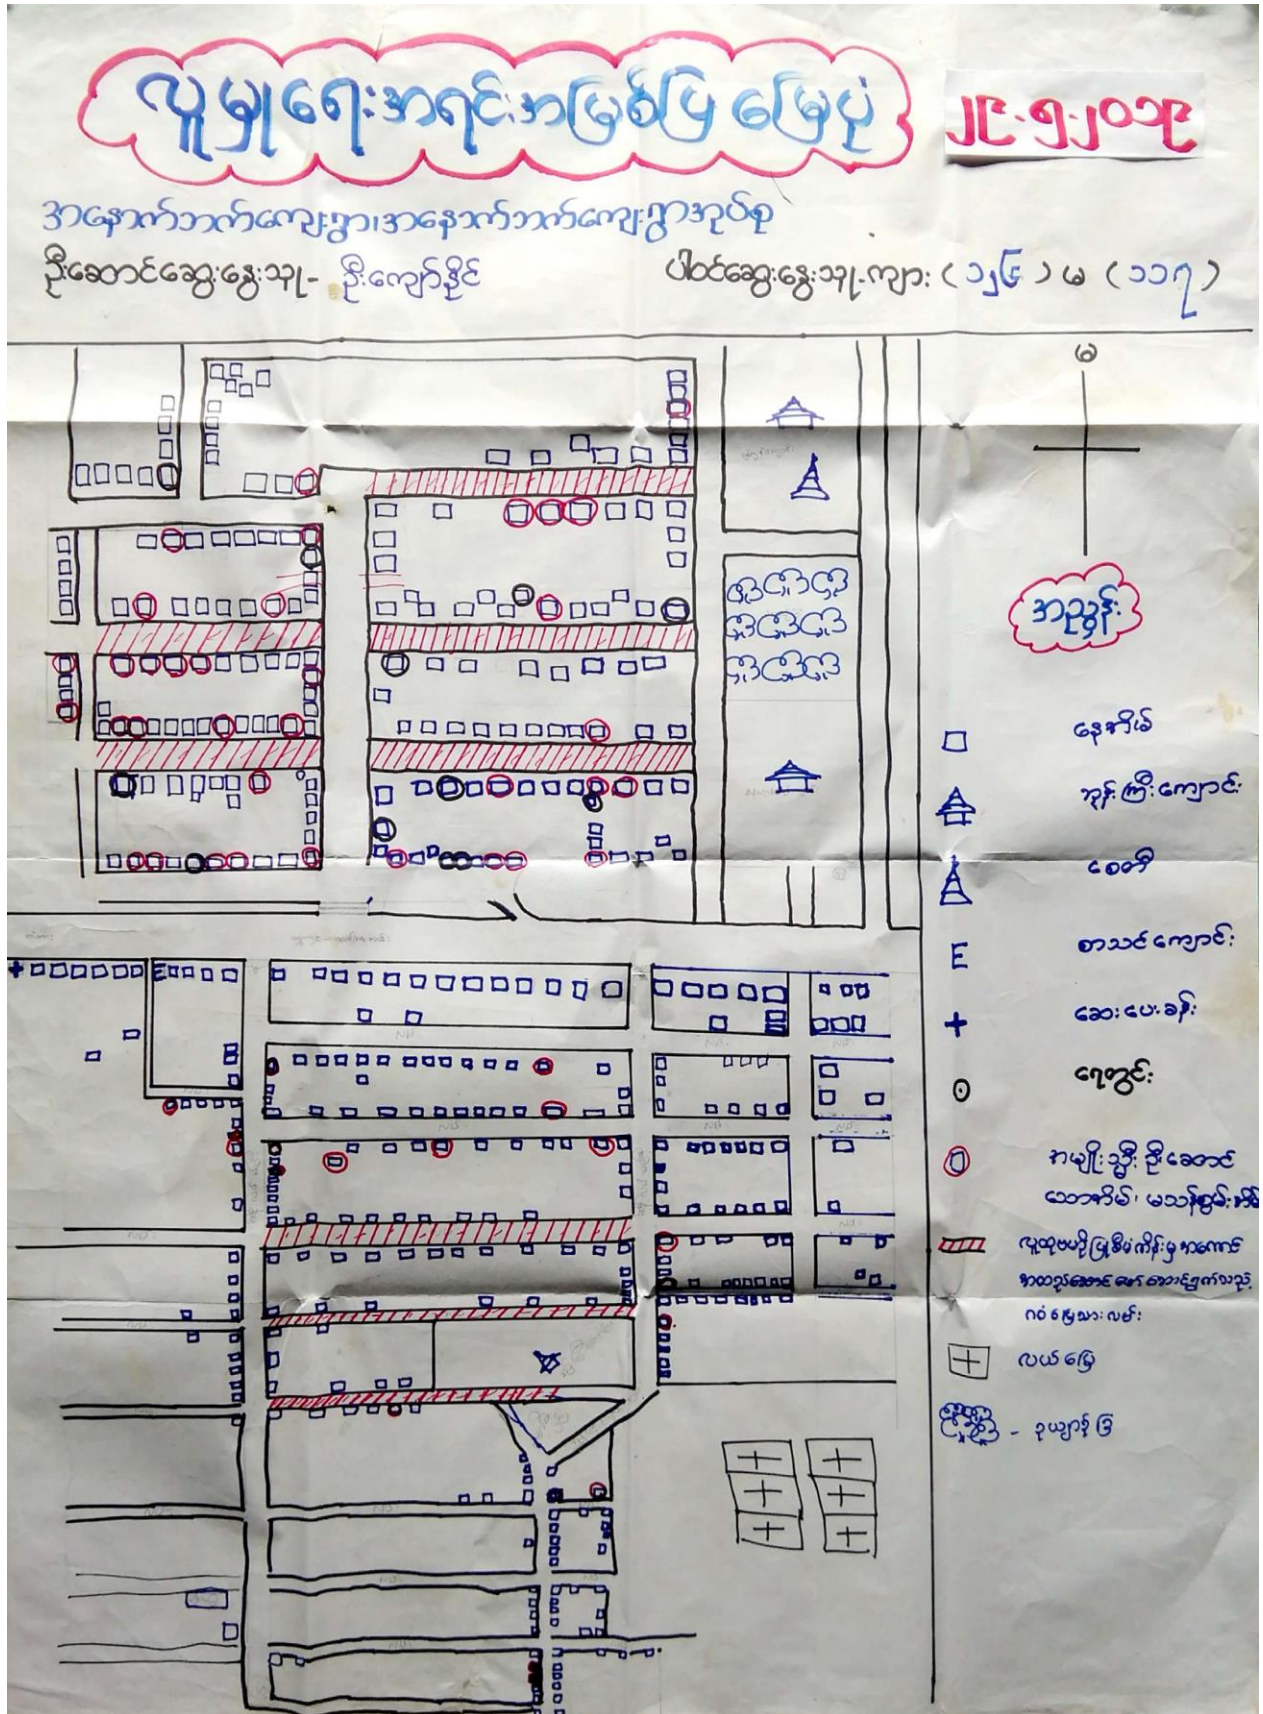 လူမှုရေးအရင်းအမြစ်ပြ မြေပုံ
၂၉.၅.၂၀၁၉
အနောက်ဘက်ကျေးရွာ၊အနောက်ဘက်ကျေးရွာအုပ်စု
ဦးဆောင်ဆွေးနွေးသူ- ဦးကျော်နိုင်
ပါဝင်ဆွေးနွေးသူ.ကျား (၁၂၆) မ (၁၁၇)
မ
အညွှန်း
နေအိမ်
ဘုန်းကြီးကျောင်း
စေတီ
E စာသင်ကျောင်း
ဆေးပေးခန်း
ရေတွင်း
အမျိုးသ္မီး ဦးဆောင်
သောအိမ်၊ မသန်စွမ်းအိမ်
လူထုဗဟိုပြုစီမံကိန်းမှအကောင်
အထည်ဖော်ဆောင်ရွက်သည့်
ဂဝံမြေသားလမ်း
လယ်မြေ
- ဥယျာဉ်ခြံ
E